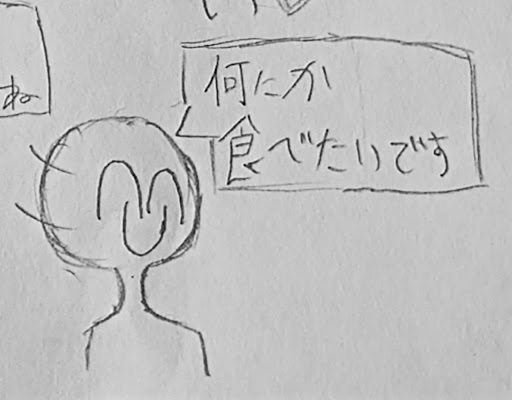 ね
何にか
食べたいです